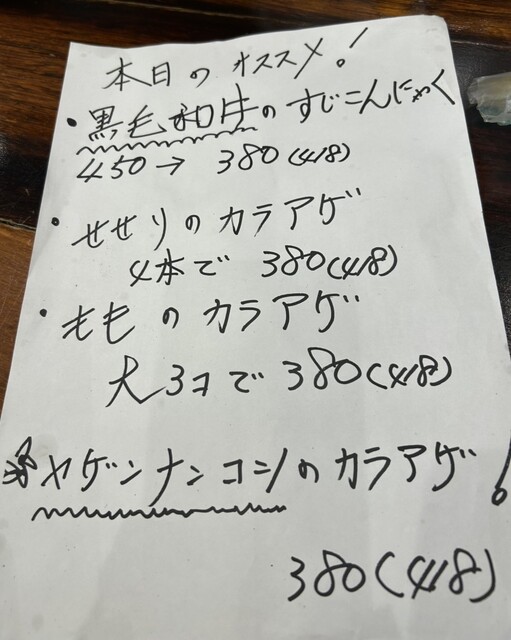 本日のオススメ!
・黒毛和牛のすじこんにゃく
450→ 380(418)
・せせりのカラアゲ
4本で 380(418)
・ももの カラアゲ
大3コで 380(418)
ヤゲンナンコツのカラアゲ!
380(418)